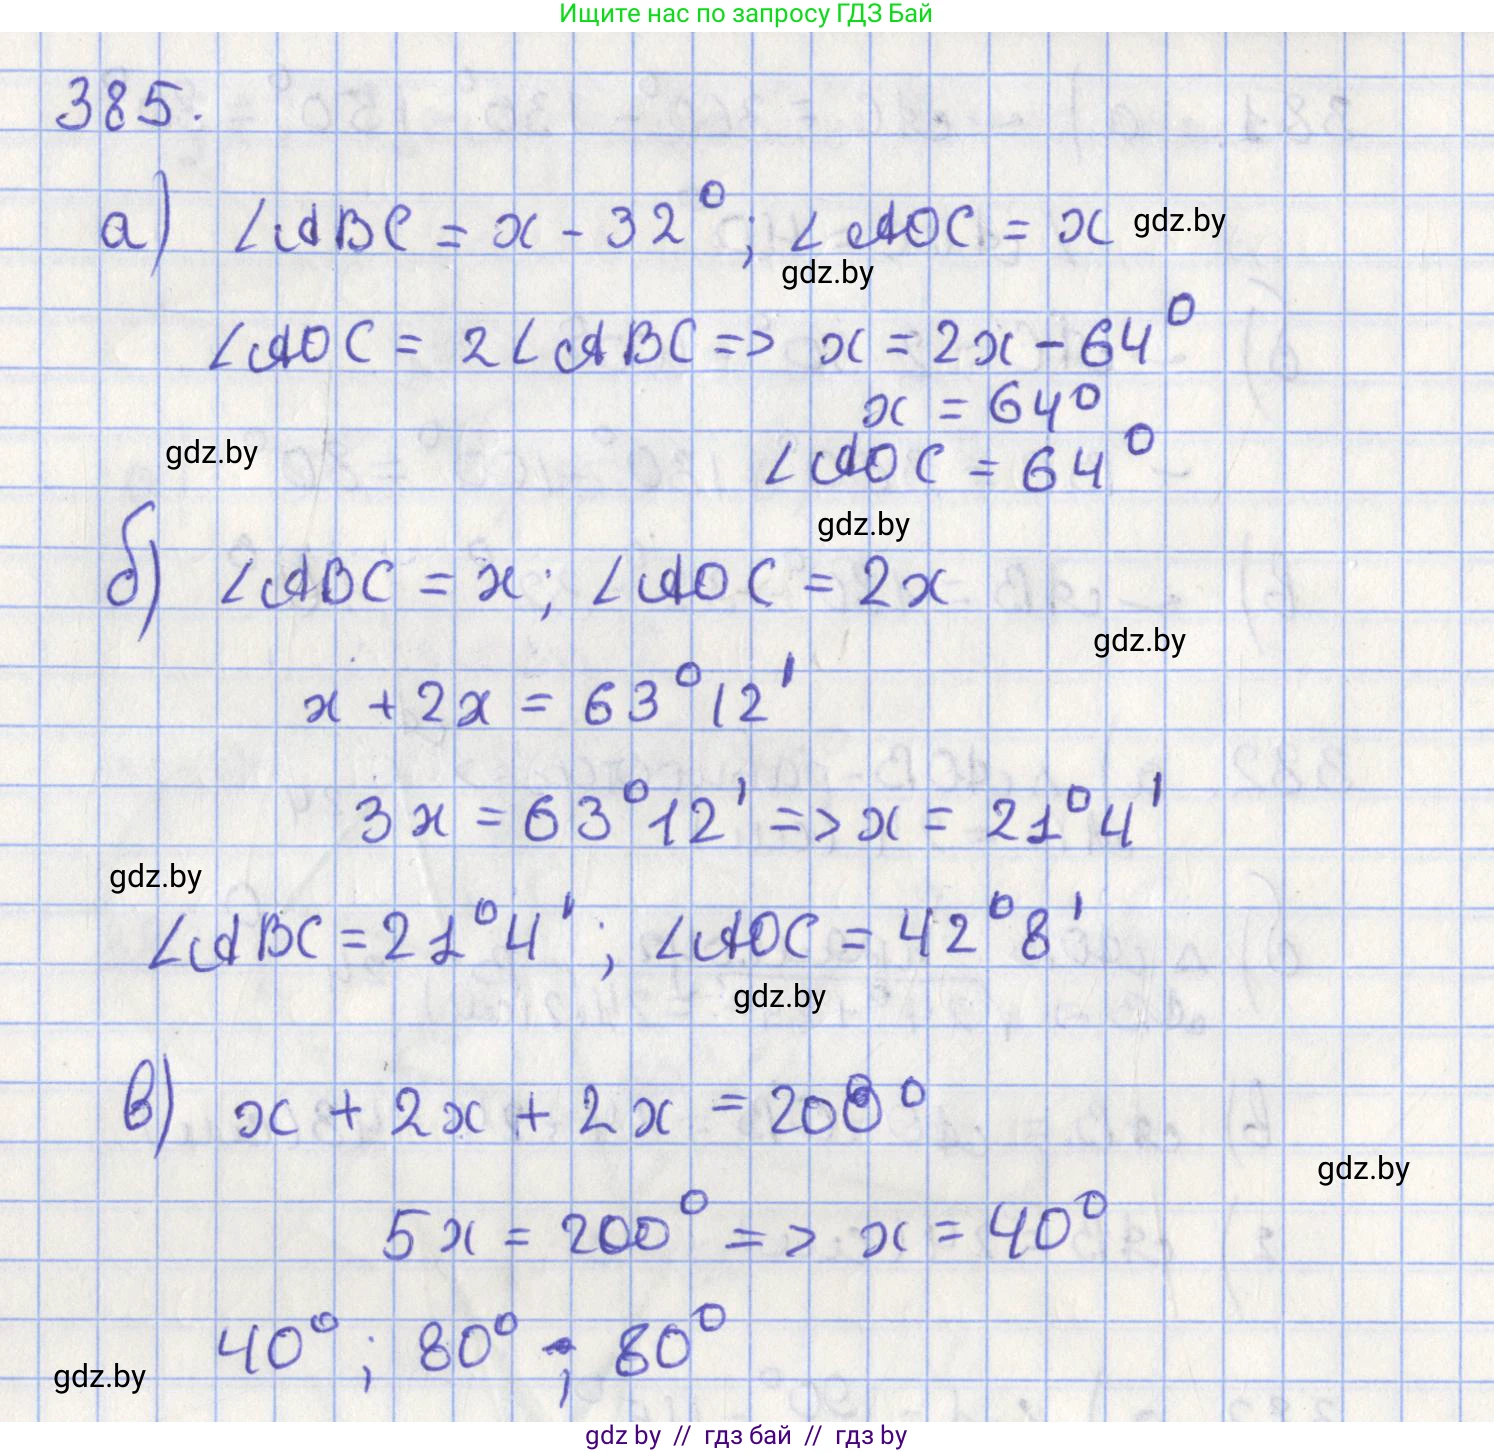 Ищите нас по запросу ГДЗ Бай
385.
а) ∠ABC = x - 32°; ∠AOC = x gdz.by
gdz.by
∠AOC = 2∠ABC => x = 2x - 64°
x = 64°
gdz.by
∠AOC = 64°
gdz.by
б) ∠ABC = x; ∠AOC = 2x
gdz.by
x + 2x = 63°12'
3x = 63°12' => x = 21°4'
gdz.by
∠ABC = 21°4'; ∠AOC = 42°8'
gdz.by
в) x + 2x + 2x = 200°
gdz.by
5x = 200° => x = 40°
40°; 80°; 80°
gdz.by
gdz by // гдз бай // гдз by